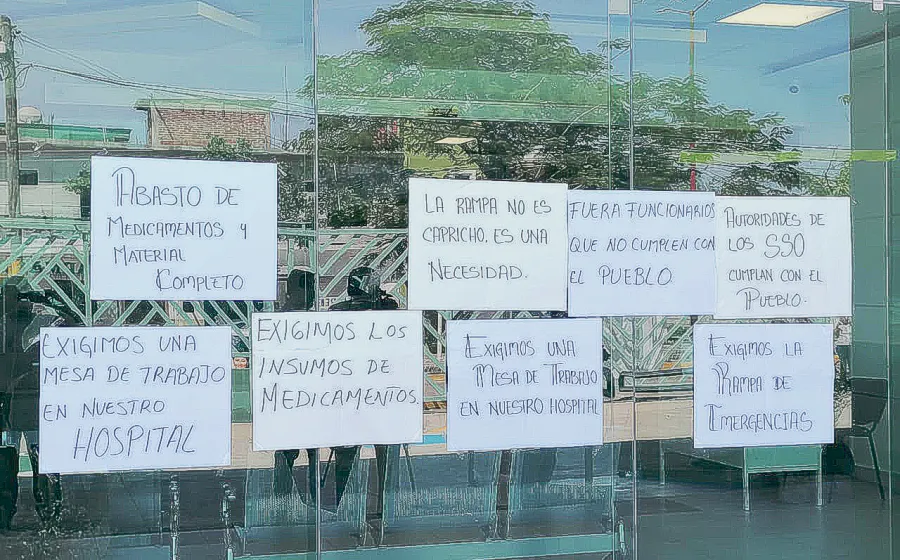 ABASTO DE
MEDICAMENTOS Y
MATERIAL
COMPLETO
LA RAMPA NO ES
CAPRICHO. ES UNA
NECESIDAD.
FUERA FUNCIONARIOS
QUE NO CUMPLEN CON
EL PUEBLO.
AUTORIDADES DE
LOS SSO
CUMPLAN CON EL
PUEBLO.
EXIGIMOS UNA
MESA DE TRABAJO
EN NUESTRO
HOSPITAL
EXIGIMOS LOS
INSUMOS DE
MEDICAMENTOS.
EXIGIMOS UNA
MESA DE TRABAJO
EN NUESTRO HOSPITAL
EXIGIMOS LA
RAMPA DE
EMERGENCIAS